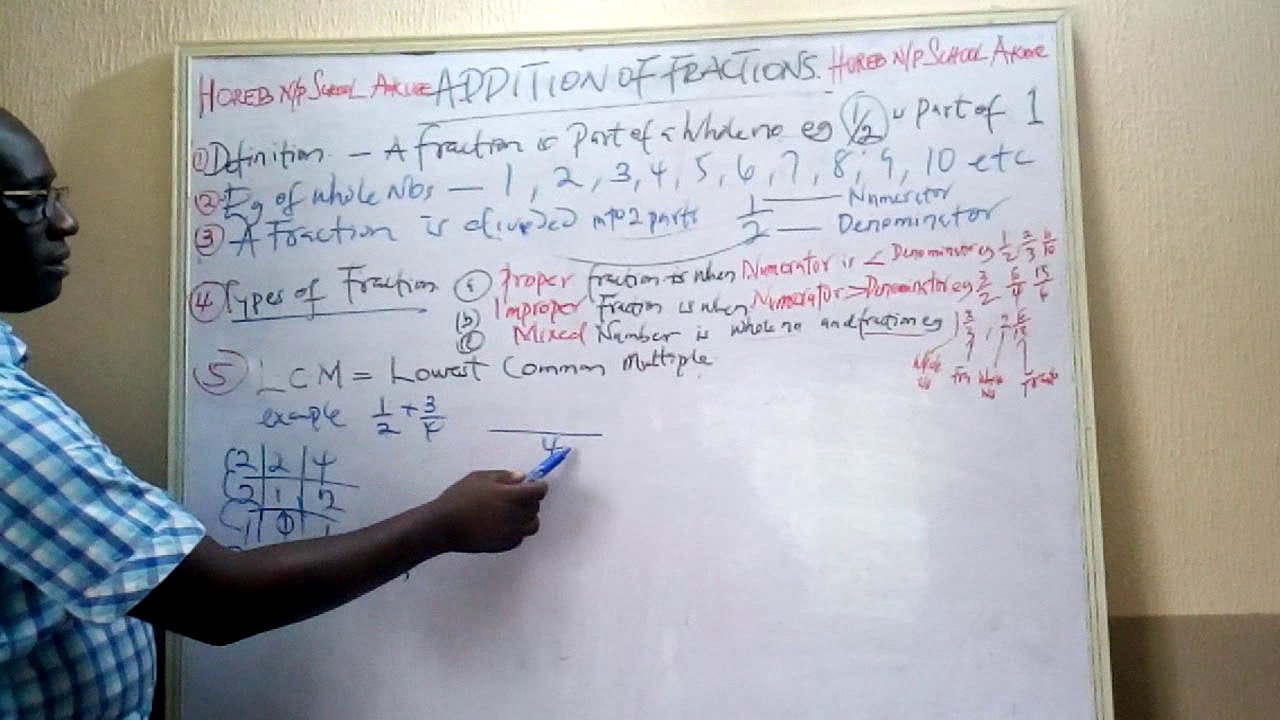 HOREB N/P SCHOOL AKURE ADDITION OF FRACTIONS. HOREB N/P SCHOOL AKURE
① Definition — A fraction is Part of a whole no eg 1/2 is part of 1
② Eg of whole Nbs — 1, 2, 3, 4, 5, 6, 7, 8, 9, 10 etc
③ A Fraction is divided into 2 parts 1/2 — Numerator — Denominator
④ Types of Fraction
Proper fraction is when Numerator is < Denominator eg 1/2 2/3 6/10
(b) Improper Fraction is when Numerator > Denominator eg 3/2 6/4 15/6
Mixed Number is whole no and fraction eg
⑤ LCM = Lowest Common Multiple
example 1/2 + 3/4
4
2 | 2 | 4
2 | 1 | 2
1 | 1 | 1